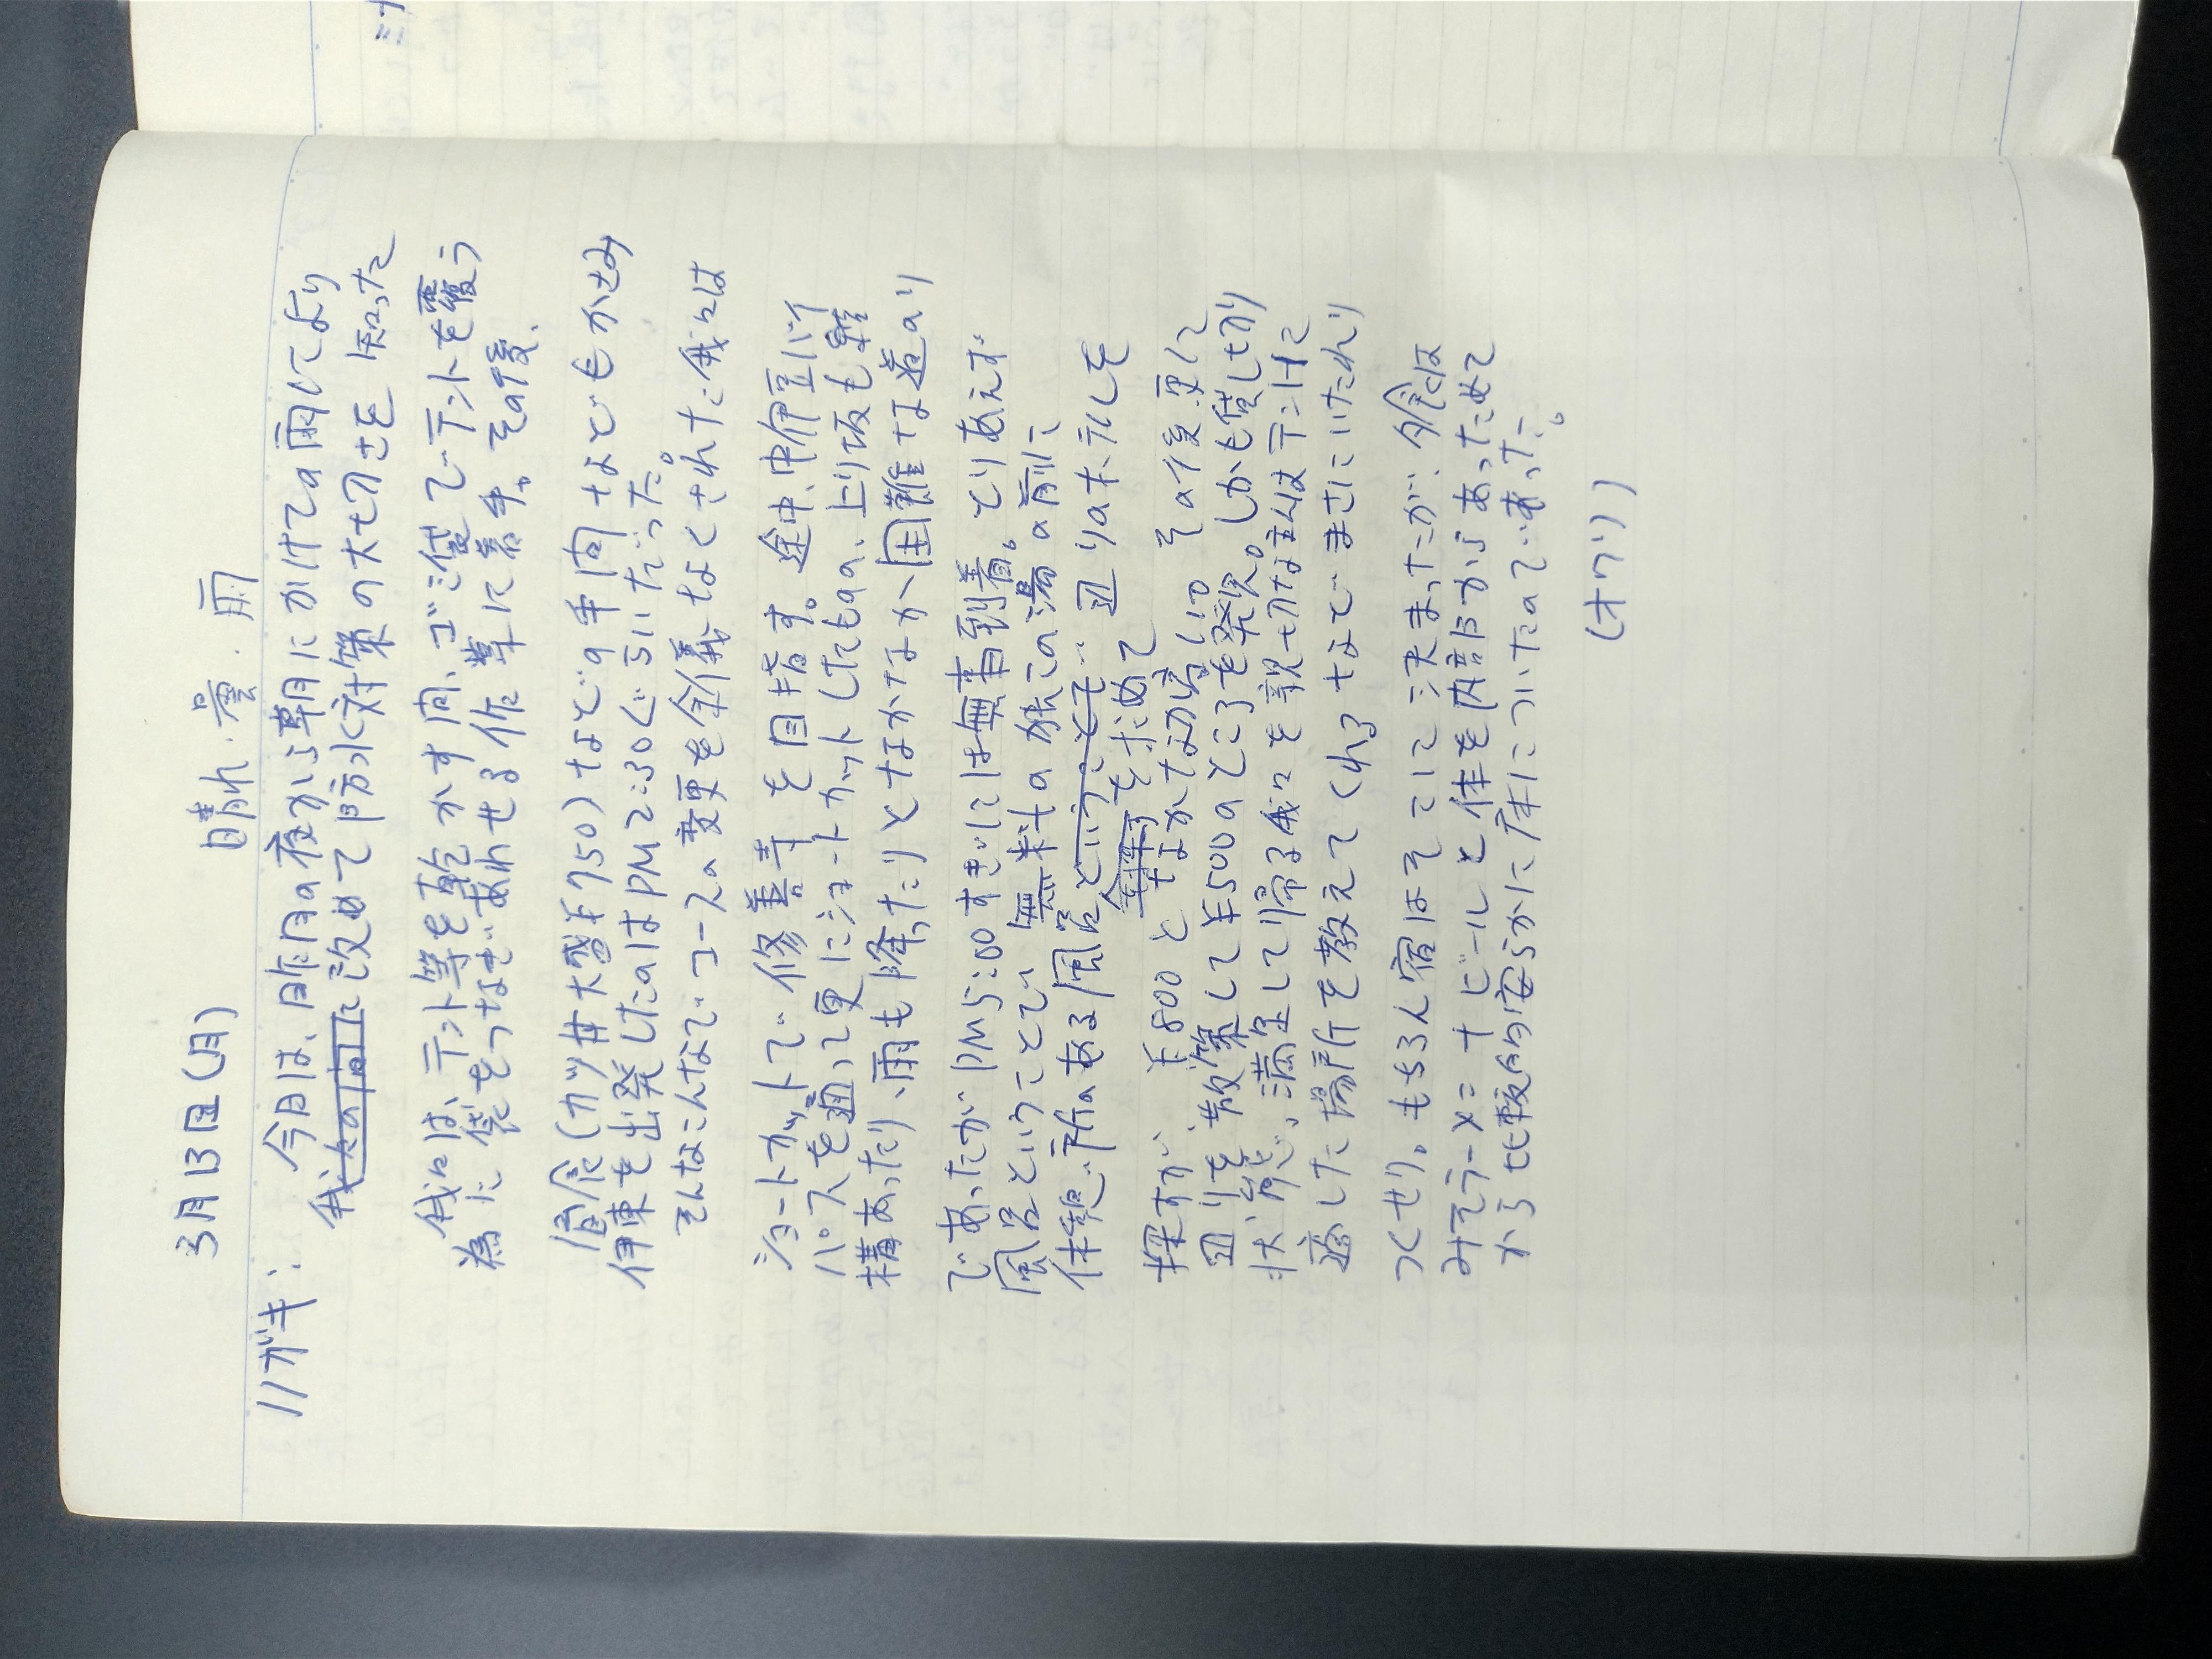 3月13日(月)
晴れ・曇・雨
ハガキ: 今日は、昨日の夜から朝にかけての雨により
改めて防水対策の大切さを知った
我々は、テント等を乾かす間、ゴミ袋でテントを覆う
為に袋をつなぎあわせる作業に着手。その後、
昼食(カツ丼大盛¥750)などの手間などもかさみ
伊東を出発したのはPM2:30ぐらいだった。
そんなこんなでコースの変更を余儀なくされた我々は
ショートカットで修善寺を目指す。途中、中伊豆バイ
パスを通って更にショートカットしたものの、上り坂も結
構あったり、雨も降ったりとなかなか困難な道のり
であったがPM5:00すぎには無事到着。とりあえず
風呂ということで、無料の独この湯の前に
休憩所のある風呂 辺りの木 元しを
求めて
探すが ¥800となかなか高い!? その後更に
辺りを散策して¥500のところを発見。しかも貸し切り
状態、満足して帰る我々を親切な主人はテントに
適した場所を教えてくれるなどまさにいたれり
つくせり。もちろん宿はそこに決まったが… 夕食は
みそラーメン+ビールと体を内部からあっためて
から比較的安らかに床についたのであった。
(オワリ)